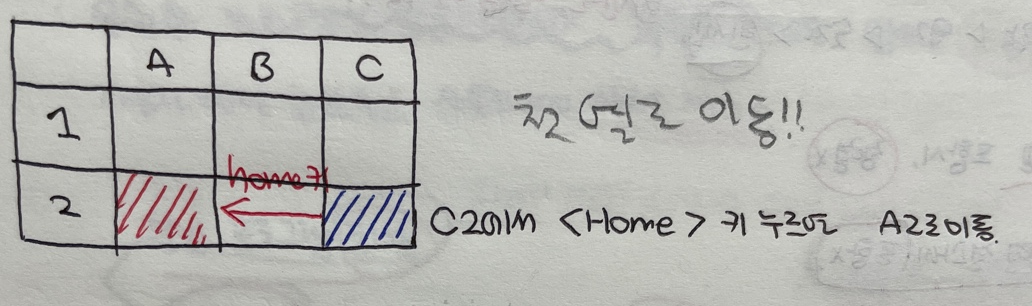 A B C
1
첫 열로 이동!!
home키
2
C2에서 <Home> 키 누르면 A2로 이동.